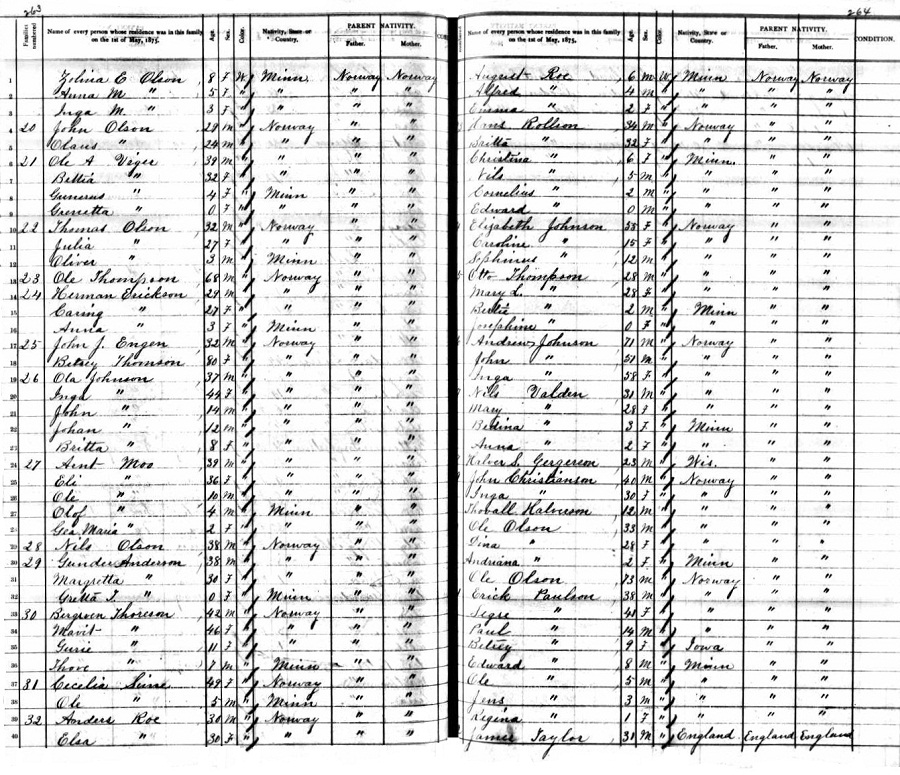 263
Families numbered
Name of every person whose residence was in this family on the 1st of May, 1875.
Age.
Sex.
Color.
Nativity, State or Country.
PARENT NATIVITY.
Father.
Mother.
1 Zelina C Olson 8 F W Minn Norway Norway
2 Anna M " 5 F " " " "
3 Inga M. " 3 F " " " "
4 20 John Olson 29 m " Norway " "
5 Claus " 24 m " " " "
6 21 Ole A Viger 39 m " " " "
7 Bettia " 32 F " " " "
8 Gunerus " 4 F " Minn " "
9 Grenetta " 0 F " " " "
10 22 Thomas Olson 32 m " Norway " "
11 Julia " 27 F " " " "
12 Oliver " 3 m " Minn " "
13 23 Ole Thompson 68 m " Norway " "
14 24 Herman Erickson 29 m " " " "
15 Caring " 27 F " " " "
16 Anna " 3 F " Minn " "
17 25 John J. Engen 32 m " Norway " "
18 Betsey Thomson 80 F " " " "
19 26 Ola Johnson 37 m " " " "
20 Inga " 44 F " " " "
21 John " 14 m " " " "
22 Johan " 12 m " " " "
23 Britta " 8 F " " " "
24 27 Arnt Moo 39 m " " " "
25 Eli " 36 F " " " "
26 Ole " 10 m " " " "
27 Olof " 4 m " Minn " "
28 Gea Maria " 2 F " " " "
29 28 Nils Olson 38 m " Norway " "
30 29 Gunder Anderson 38 m " " " "
31 Margretta " 30 F " " " "
32 Gretta J. " 0 F " Minn " "
33 30 Bergroen Thoreson 42 m " Norway " "
34 Mavit " 46 F " " " "
35 Gurie " 11 F " " " "
36 Thore " 7 m " Minn " "
37 31 Cecelia Sime 49 F " Norway " "
38 Ole " 5 m " Minn " "
39 32 Anders Roe 30 m " Norway " "
40 Elsa " 30 F " " " "
264
Name of every person whose residence was in this family on the 1st of May, 1875.
Age.
Sex.
Color.
Nativity, State or Country.
PARENT NATIVITY.
Father.
Mother.
CONDITION.
August Roe 6 m W Minn Norway Norway
Alfred " 4 m " " " "
Emma " 2 F " " " "
Hans Rollson 34 m " Norway " "
Britta " 32 F " " " "
Christina " 6 F " Minn. " "
Nils " 5 m " " " "
Cornelius " 2 m " " " "
Edward " 0 m " " " "
Elizabeth Johnson 58 F " Norway " "
Caroline " 15 F " " " "
Sophinus " 12 m " " " "
Otto Thompson 28 m " " " "
Mary L. " 28 F " " " "
Bertie " 2 m " Minn " "
Josephine " 0 F " " " "
Andrew Johnson 71 m " Norway " "
John " 51 m " " " "
Inga " 58 F " " " "
Nils Valden 31 m " " " "
Mary " 28 F " " " "
Bedina " 3 F " Minn " "
Anna " 2 F " " " "
Helver S. Gergerson 23 m " Wis. " "
John Christianson 40 m " Norway " "
Inga " 30 F " " " "
Thovall Halverson 12 m " " " "
Ole Olson 33 m " " " "
Dina " 28 F " " " "
Andriana " 2 F " Minn " "
Ole Olson 73 m " Norway " "
Erick Paulson 38 m " " " "
Segre " 41 F " " " "
Paul " 14 m " " " "
Betsey " 9 F " Iowa " "
Edward " 8 m " Minn " "
Ole " 5 m " " " "
Jens " 3 m " " " "
Regina " 1 F " " " "
James Taylor 31 M " England England England